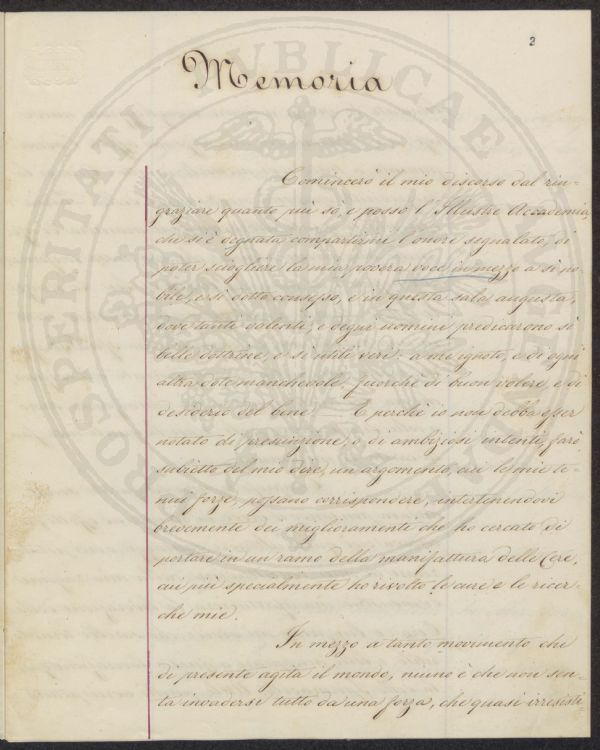 2
Memoria
Comincerò il mio discorso dal rin-
graziare quanto più so, e posso l'Illustre Accademia
che si è degnata compartirmi l'onore segnalato, di
poter sciogliere la mia povera voce in mezzo a sì no
bile, e sì dotto consesso, e in questa sala augusta,
dove tanti valenti, e degni uomini predicarono sì
belle dottrine, e sì utili veri: a me ignoto, e di ogni
altra dote manchevole, fuorchè di buon volere, e di
desiderio del bene. — E perchè io non debba esser
notato di presunzione, o di ambiziosi intenti, farò
subietto del mio dire, un argomento, cui le mie te-
nui forze, possano corrispondere, intertenendovi
brevemente dei miglioramenti che ho cercato di
portare in un ramo della manifattura delle Cere,
cui più specialmente ho rivolto le cure e le ricer-
che mie.
In mezzo a tanto movimento che
di presente agita il mondo, niuno è che non sen-
ta invadersi tutto da una forza, che quasi irresisti-
PROSPERITATI PUBLICAE AUGENDAE